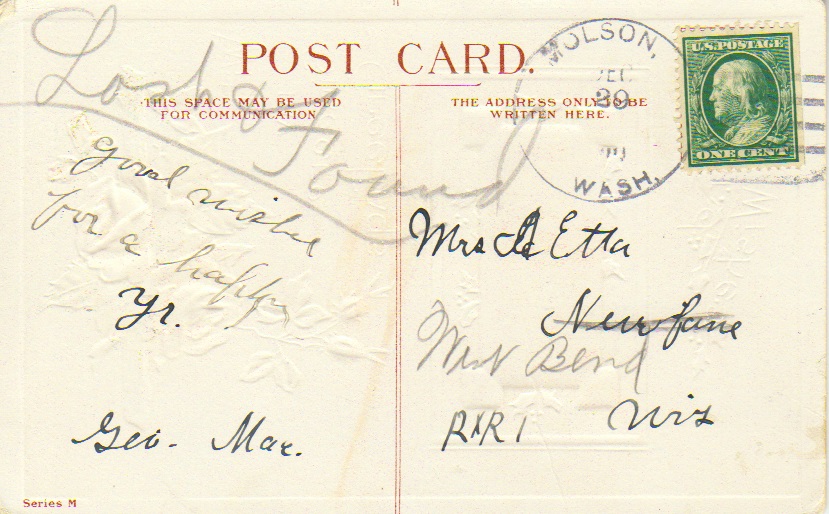 POST CARD.
THIS SPACE MAY BE USED
FOR COMMUNICATION
THE ADDRESS ONLY TO BE
WRITTEN HERE.
Lost &
Found
MOLSON,
DEC
29
WASH.
U.S. POSTAGE
ONE CENT
good wishes
for a happy
Yr.
Geo. Mac.
Mrs Etta
Newfane
West Bend
RR1 Wis
Series M